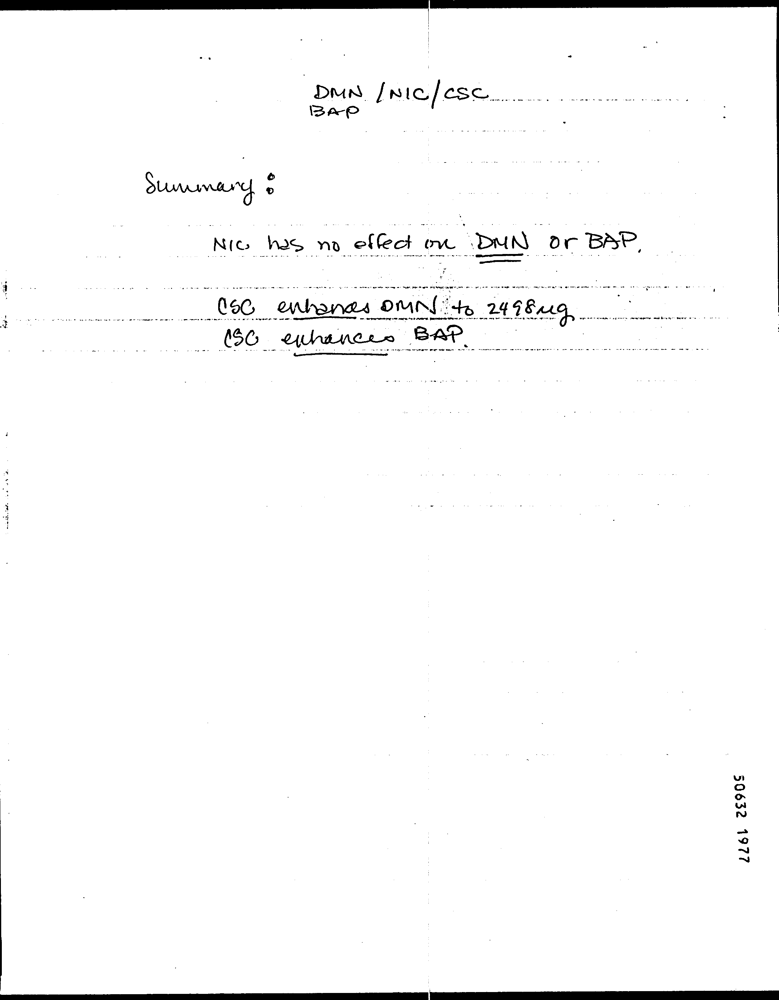 DMN / NIC / CSC
BAP
Summary :
NIC has no effect on DMN or BAP.
CSC enhances DMN to 2498 ug
CSC enhances BAP.
50632 1977